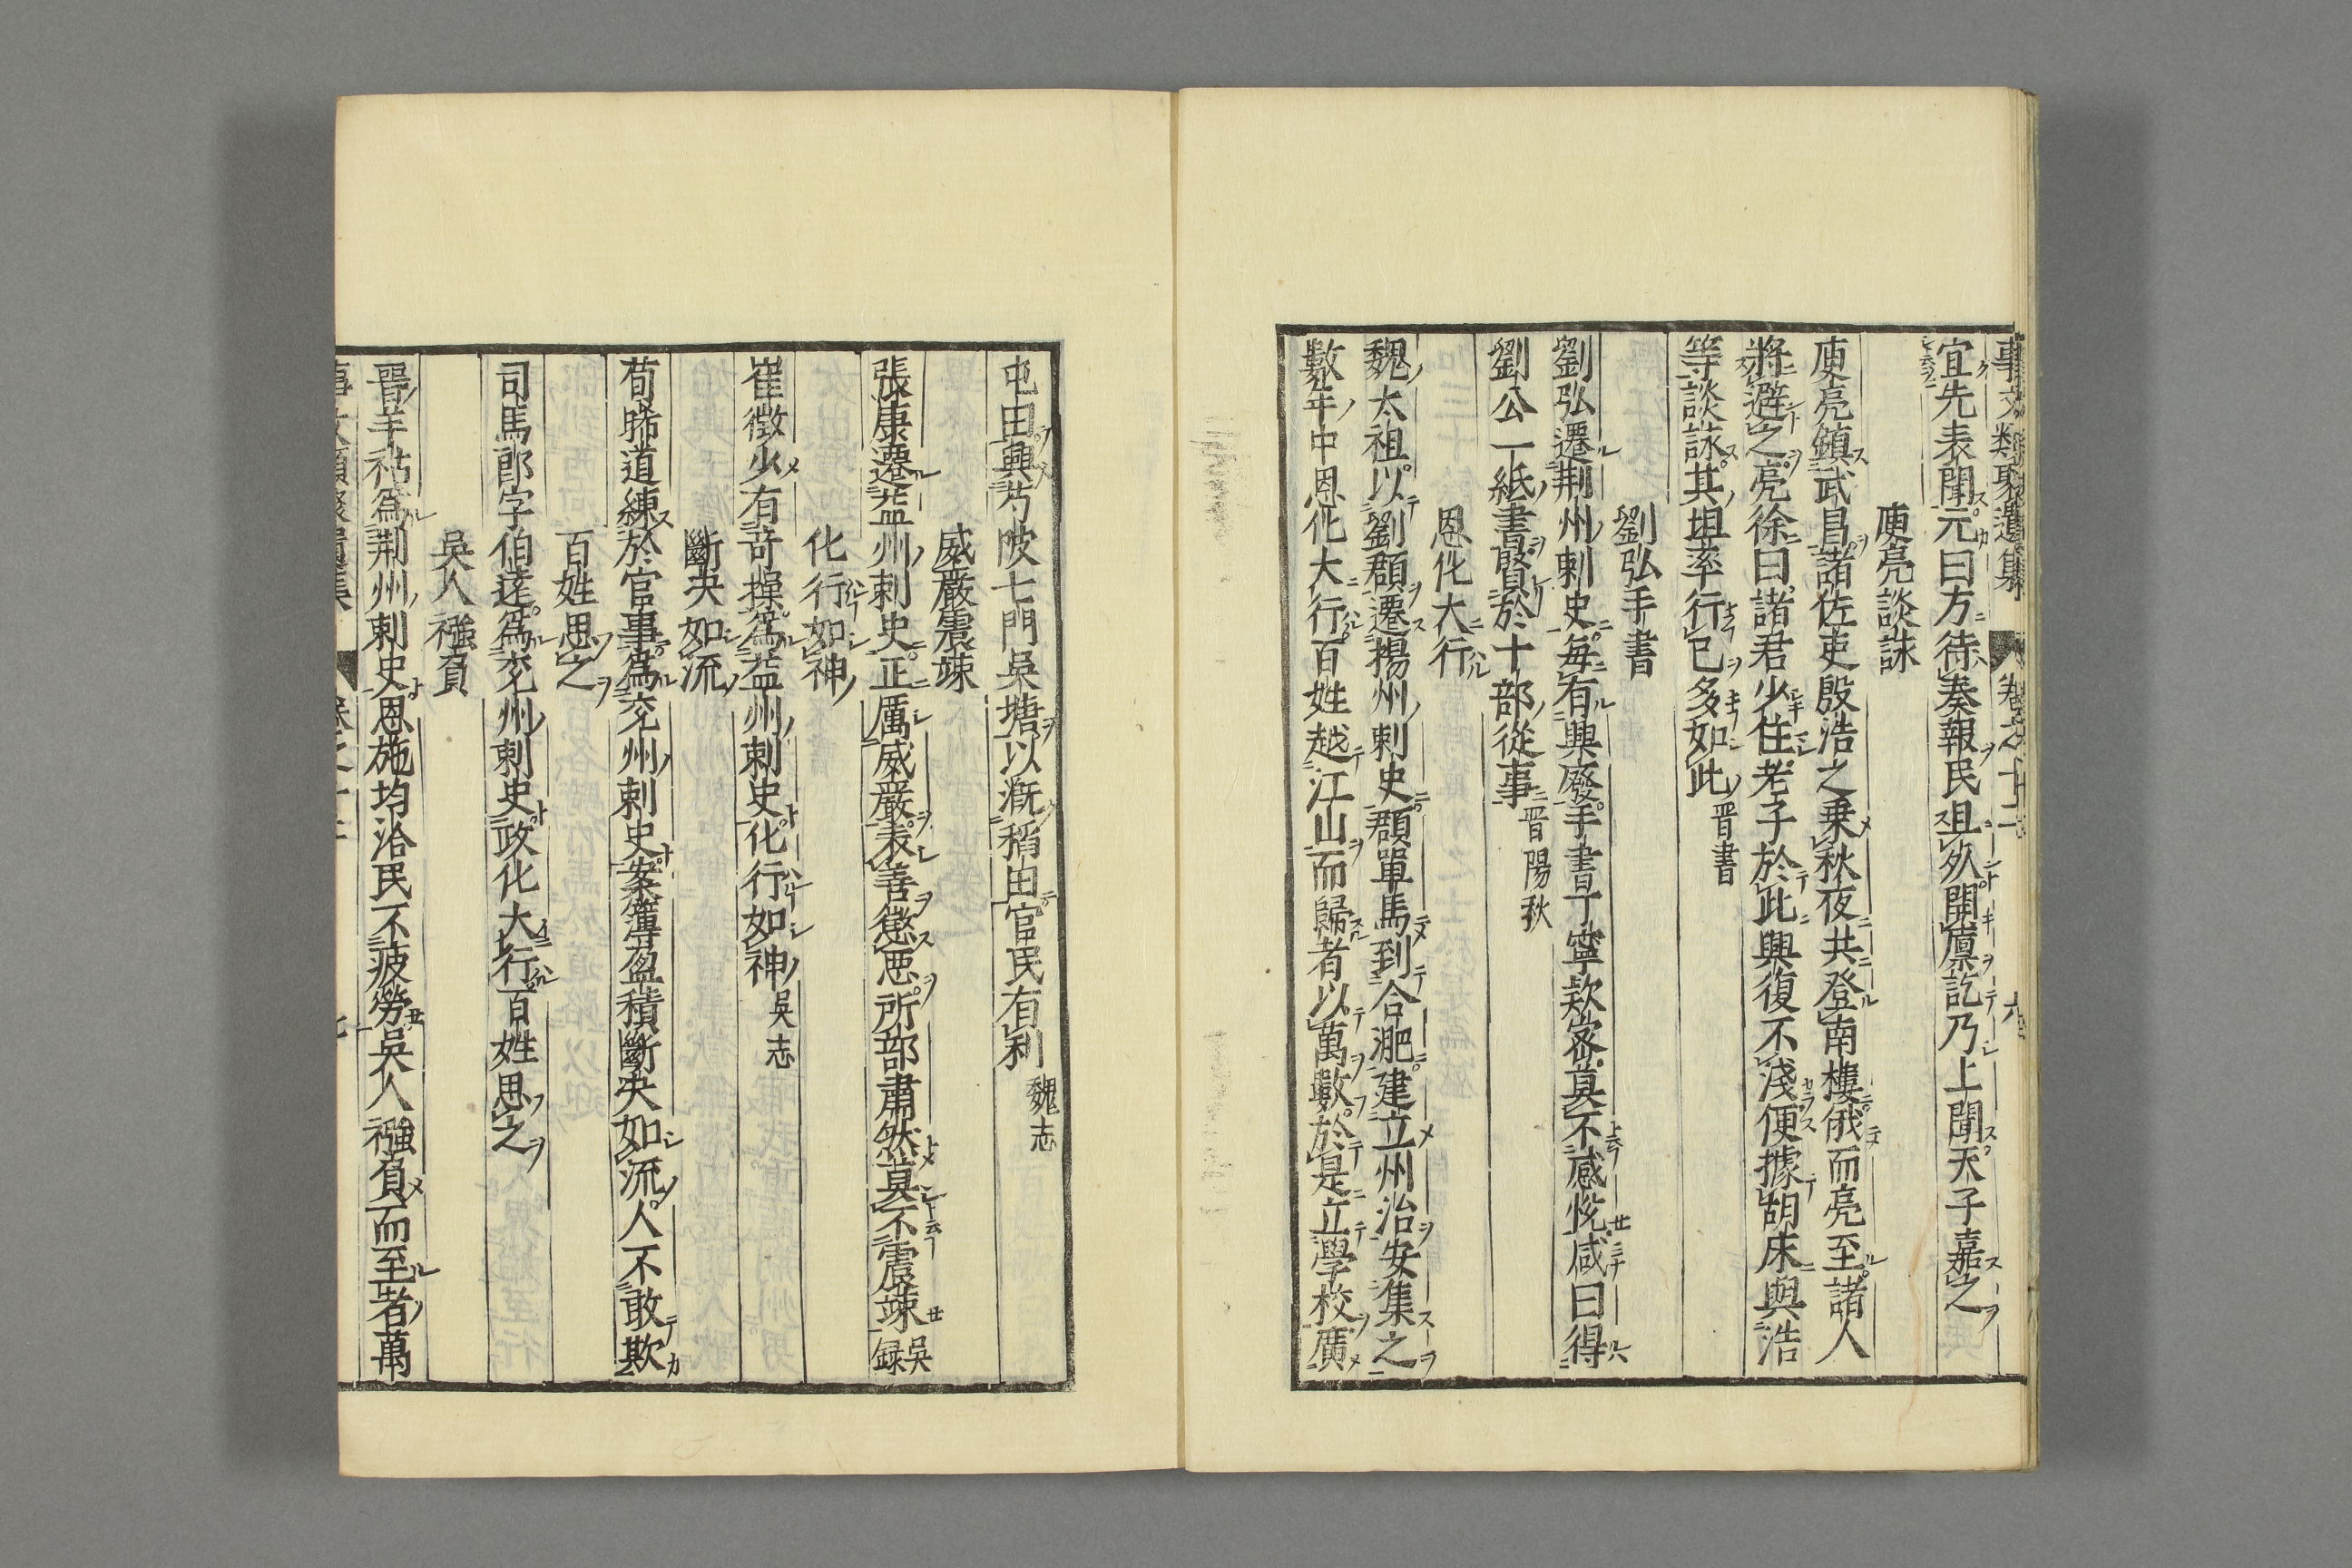 事文類聚遺集 卷之十二 六
宜先表聞元曰方待奏報民且殍矣開廩訖乃上聞天子嘉之
庾亮談詠
庾亮鎮武昌諸佐吏殷浩之乗秋夜共登南樓俄而亮至諸人
將避之亮徐曰諸君少住老子於此興復不淺便據胡床與浩
等談詠其坦率行已多如此晋書
劉弘手書
劉弘遷荆州刺史每有興廢手書丁寧欵宻莫不感悦咸曰得
劉公一紙書賢於十部從事晋陽秋
恩化大行
魏太祖以劉頵遷揚州刺史頵單馬到合淝建立州治安集之
數年中恩化大行百姓越江山而歸者以萬數於是立學校廣
屯田興芍陂七門吳塘以溉稻田官民有利魏志
威嚴震竦
張康遷益州刺史正厲威嚴表善懲惡所部肅然莫不震竦吳録
化行如神
崔徵少有竒操爲益州刺史化行如神吳志
斷决如流
荀晞道練於官事爲兖州刺史案簿盈積斷决如流人不敢欺
百姓思之
司馬郎字伯達爲兖州刺史政化大行百姓思之
吳人襁負
晋羊祜爲荆州刺史恩施均洽民不疲勞吳人襁負而至者萬